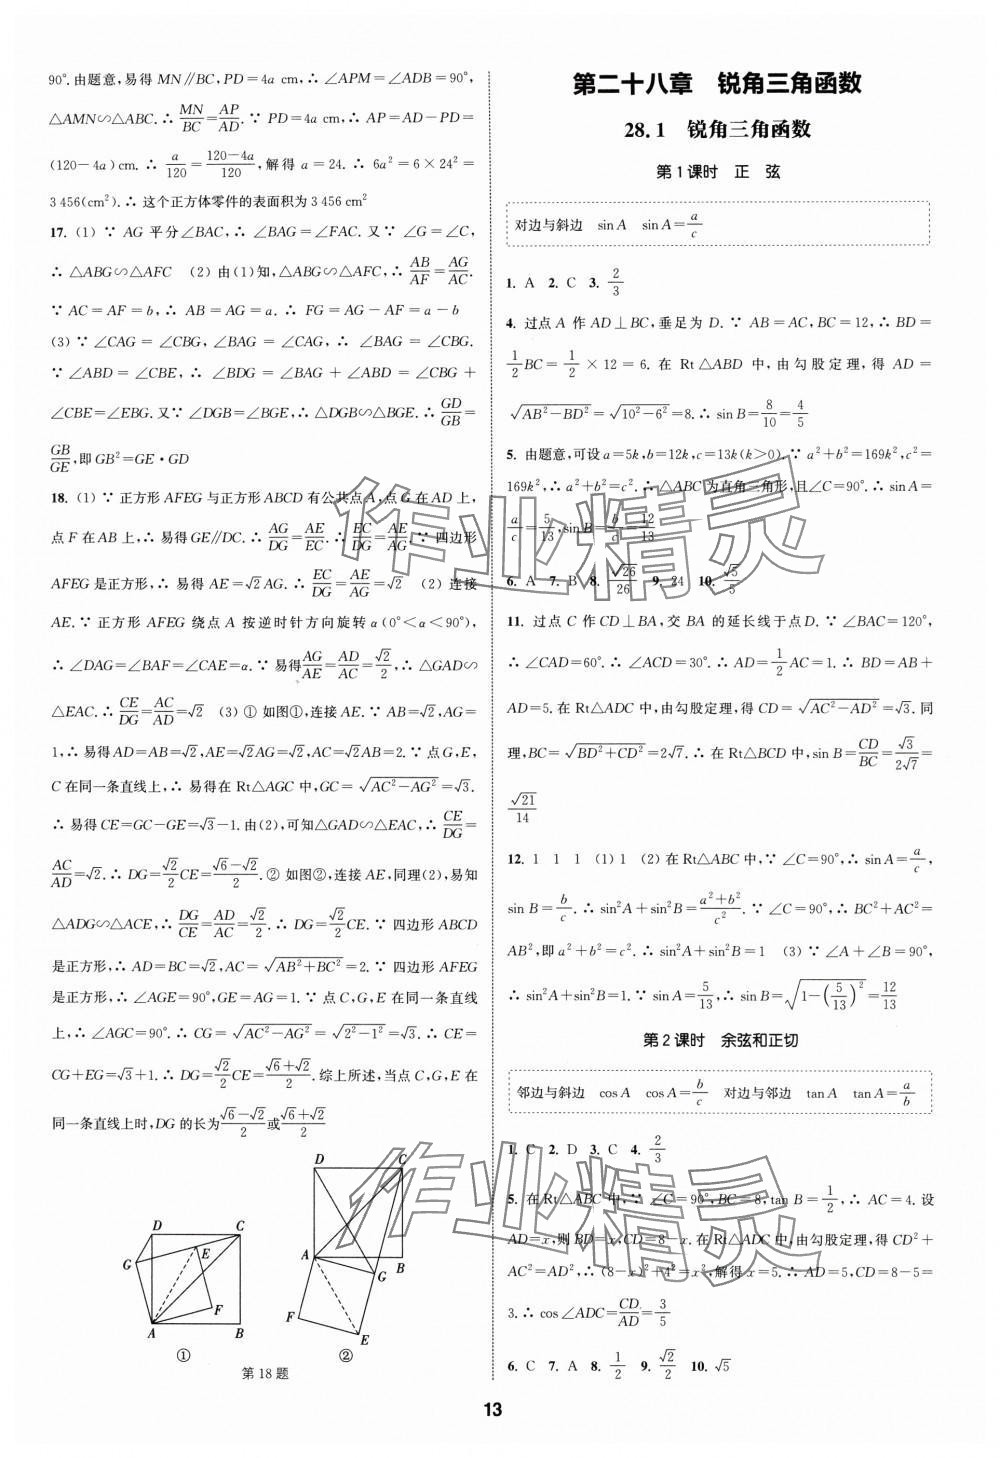 90°.由题意,易得 MN∥BC,PD=4a cm,∴ ∠APM=∠ADB=90°,
△AMN∽△ABC.∴ MN/BC=AP/AD.∵ PD=4a cm,∴ AP=AD-PD=
(120-4a)cm.∴ a/120=(120-4a)/120,解得 a=24.∴ 6a²=6×24²=
3 456(cm²).∴ 这个正方体零件的表面积为 3 456 cm²
17. (1) ∵ AG 平分∠BAC,∴ ∠BAG=∠FAC.又∵ ∠G=∠C,
∴ △ABG∽△AFC (2) 由(1)知,△ABG∽△AFC,∴ AB/AF=AG/AC.
∵ AC=AF=b,∴ AB=AG=a.∴ FG=AG-AF=a-b
(3) ∵ ∠CAG=∠CBG,∠BAG=∠CAG,∴ ∠BAG=∠CBG.
∵ ∠ABD=∠CBE,∴ ∠BDG=∠BAG+∠ABD=∠CBG+
∠CBE=∠EBG.又∵ ∠DGB=∠BGE,∴ △DGB∽△BGE.∴ GD/GB=
GB/GE,即 GB²=GE·GD
18. (1) ∵ 正方形 AFEG 与正方形 ABCD 有公共点 A,点 G 在 AD 上,
点 F 在 AB 上,∴ 易得 GE∥DC.∴ AG/DG=AE/EC.∴ EC/DG=AE/AG.∵ 四边形
AFEG 是正方形,∴ 易得 AE=√2AG.∴ EC/DG=AE/AG=√2 (2) 连接
AE.∵ 正方形 AFEG 绕点 A 按逆时针方向旋转 α(0°<α<90°),
∴ ∠DAG=∠BAF=∠CAE=α.∵ 易得AG/AE=AD/AC=√2/2,∴ △GAD∽
△EAC.∴ CE/DG=AC/AD=√2 (3) ① 如图①,连接 AE.∵ AB=√2,AG=
1,∴ 易得AD=AB=√2,AE=√2AG=√2,AC=√2AB=2.∵ 点G,E,
C 在同一条直线上,∴ 易得在 Rt△AGC 中,GC=√(AC²-AG²)=√3.
∴ 易得 CE=GC-GE=√3-1.由(2),可知△GAD∽△EAC,∴ CE/DG=
AC/AD=√2.∴ DG=√2/2CE=(√6-√2)/2.② 如图②,连接 AE,同理(2),易知
△ADG∽△ACE,∴ DG/CE=AD/AC=√2/2.∴ DG=√2/2CE.∵ 四边形 ABCD
是正方形,∴ AD=BC=√2,AC=√(AB²+BC²)=2.∵ 四边形 AFEG
是正方形,∴ ∠AGE=90°,GE=AG=1.∵ 点 C,G,E 在同一条直线
上,∴ ∠AGC=90°.∴ CG=√(AC²-AG²)=√(2²-1²)=√3.∴ CE=
CG+EG=√3+1.∴ DG=√2/2CE=(√6+√2)/2.综上所述,当点 C,G,E 在
同一条直线上时,DG 的长为(√6-√2)/2或(√6+√2)/2
D C G E F A B ①
D C A B G F E ②
第 18 题
第二十八章 锐角三角函数
28.1 锐角三角函数
第 1 课时 正 弦
对边与斜边 sin A sin A=a/c
1. A 2. C 3. 2/3
4. 过点 A 作 AD⊥BC,垂足为 D.∵ AB=AC,BC=12,∴ BD=
1/2BC=1/2×12=6.在 Rt△ABD 中,由勾股定理,得 AD=
√(AB²-BD²)=√(10²-6²)=8.∴ sin B=8/10=4/5
5. 由题意,可设 a=5k,b=12k,c=13k(k>0).∵ a²+b²=169k²,c²=
169k²,∴ a²+b²=c².∴ △ABC 为直角三角形,且∠C=90°.∴ sin A=
a/c=5/13,sin B=b/c=12/13
6. A 7. B 8. √26/26 9. 24 10. √5/5
11. 过点 C 作 CD⊥BA,交 BA 的延长线于点 D.∵ ∠BAC=120°,
∴ ∠CAD=60°.∴ ∠ACD=30°.∴ AD=1/2AC=1.∴ BD=AB+
AD=5.在 Rt△ADC 中,由勾股定理,得 CD=√(AC²-AD²)=√3.同
理,BC=√(BD²+CD²)=2√7.∴ 在 Rt△BCD 中,sin B=CD/BC=√3/2√7=
√21/14
12. 1 1 1 (1) 1 (2) 在 Rt△ABC 中,∵ ∠C=90°,∴ sin A=a/c,
sin B=b/c.∴ sin²A+sin²B=(a²+b²)/c².∵ ∠C=90°,∴ BC²+AC²=
AB²,即 a²+b²=c².∴ sin²A+sin²B=1 (3) ∵ ∠A+∠B=90°,
∴ sin²A+sin²B=1.∵ sin A=5/13,∴ sin B=√(1-(5/13)²)=12/13
第 2 课时 余弦和正切
邻边与斜边 cos A cos A=b/c 对边与邻边 tan A tan A=a/b
1. C 2. D 3. C 4. 2/3
5. 在 Rt△ABC 中,∵ ∠C=90°,BC=8,tan B=1/2,∴ AC=4.设
AD=x,则 BD=x,CD=8-x.在 Rt△ADC 中,由勾股定理,得 CD²+
AC²=AD²,∴ (8-x)²+4²=x²,解得 x=5.∴ AD=5,CD=8-5=
3.∴ cos∠ADC=CD/AD=3/5
6. C 7. A 8. 1/2 9. √2/2 10. √5
13
作业精灵
作业精灵